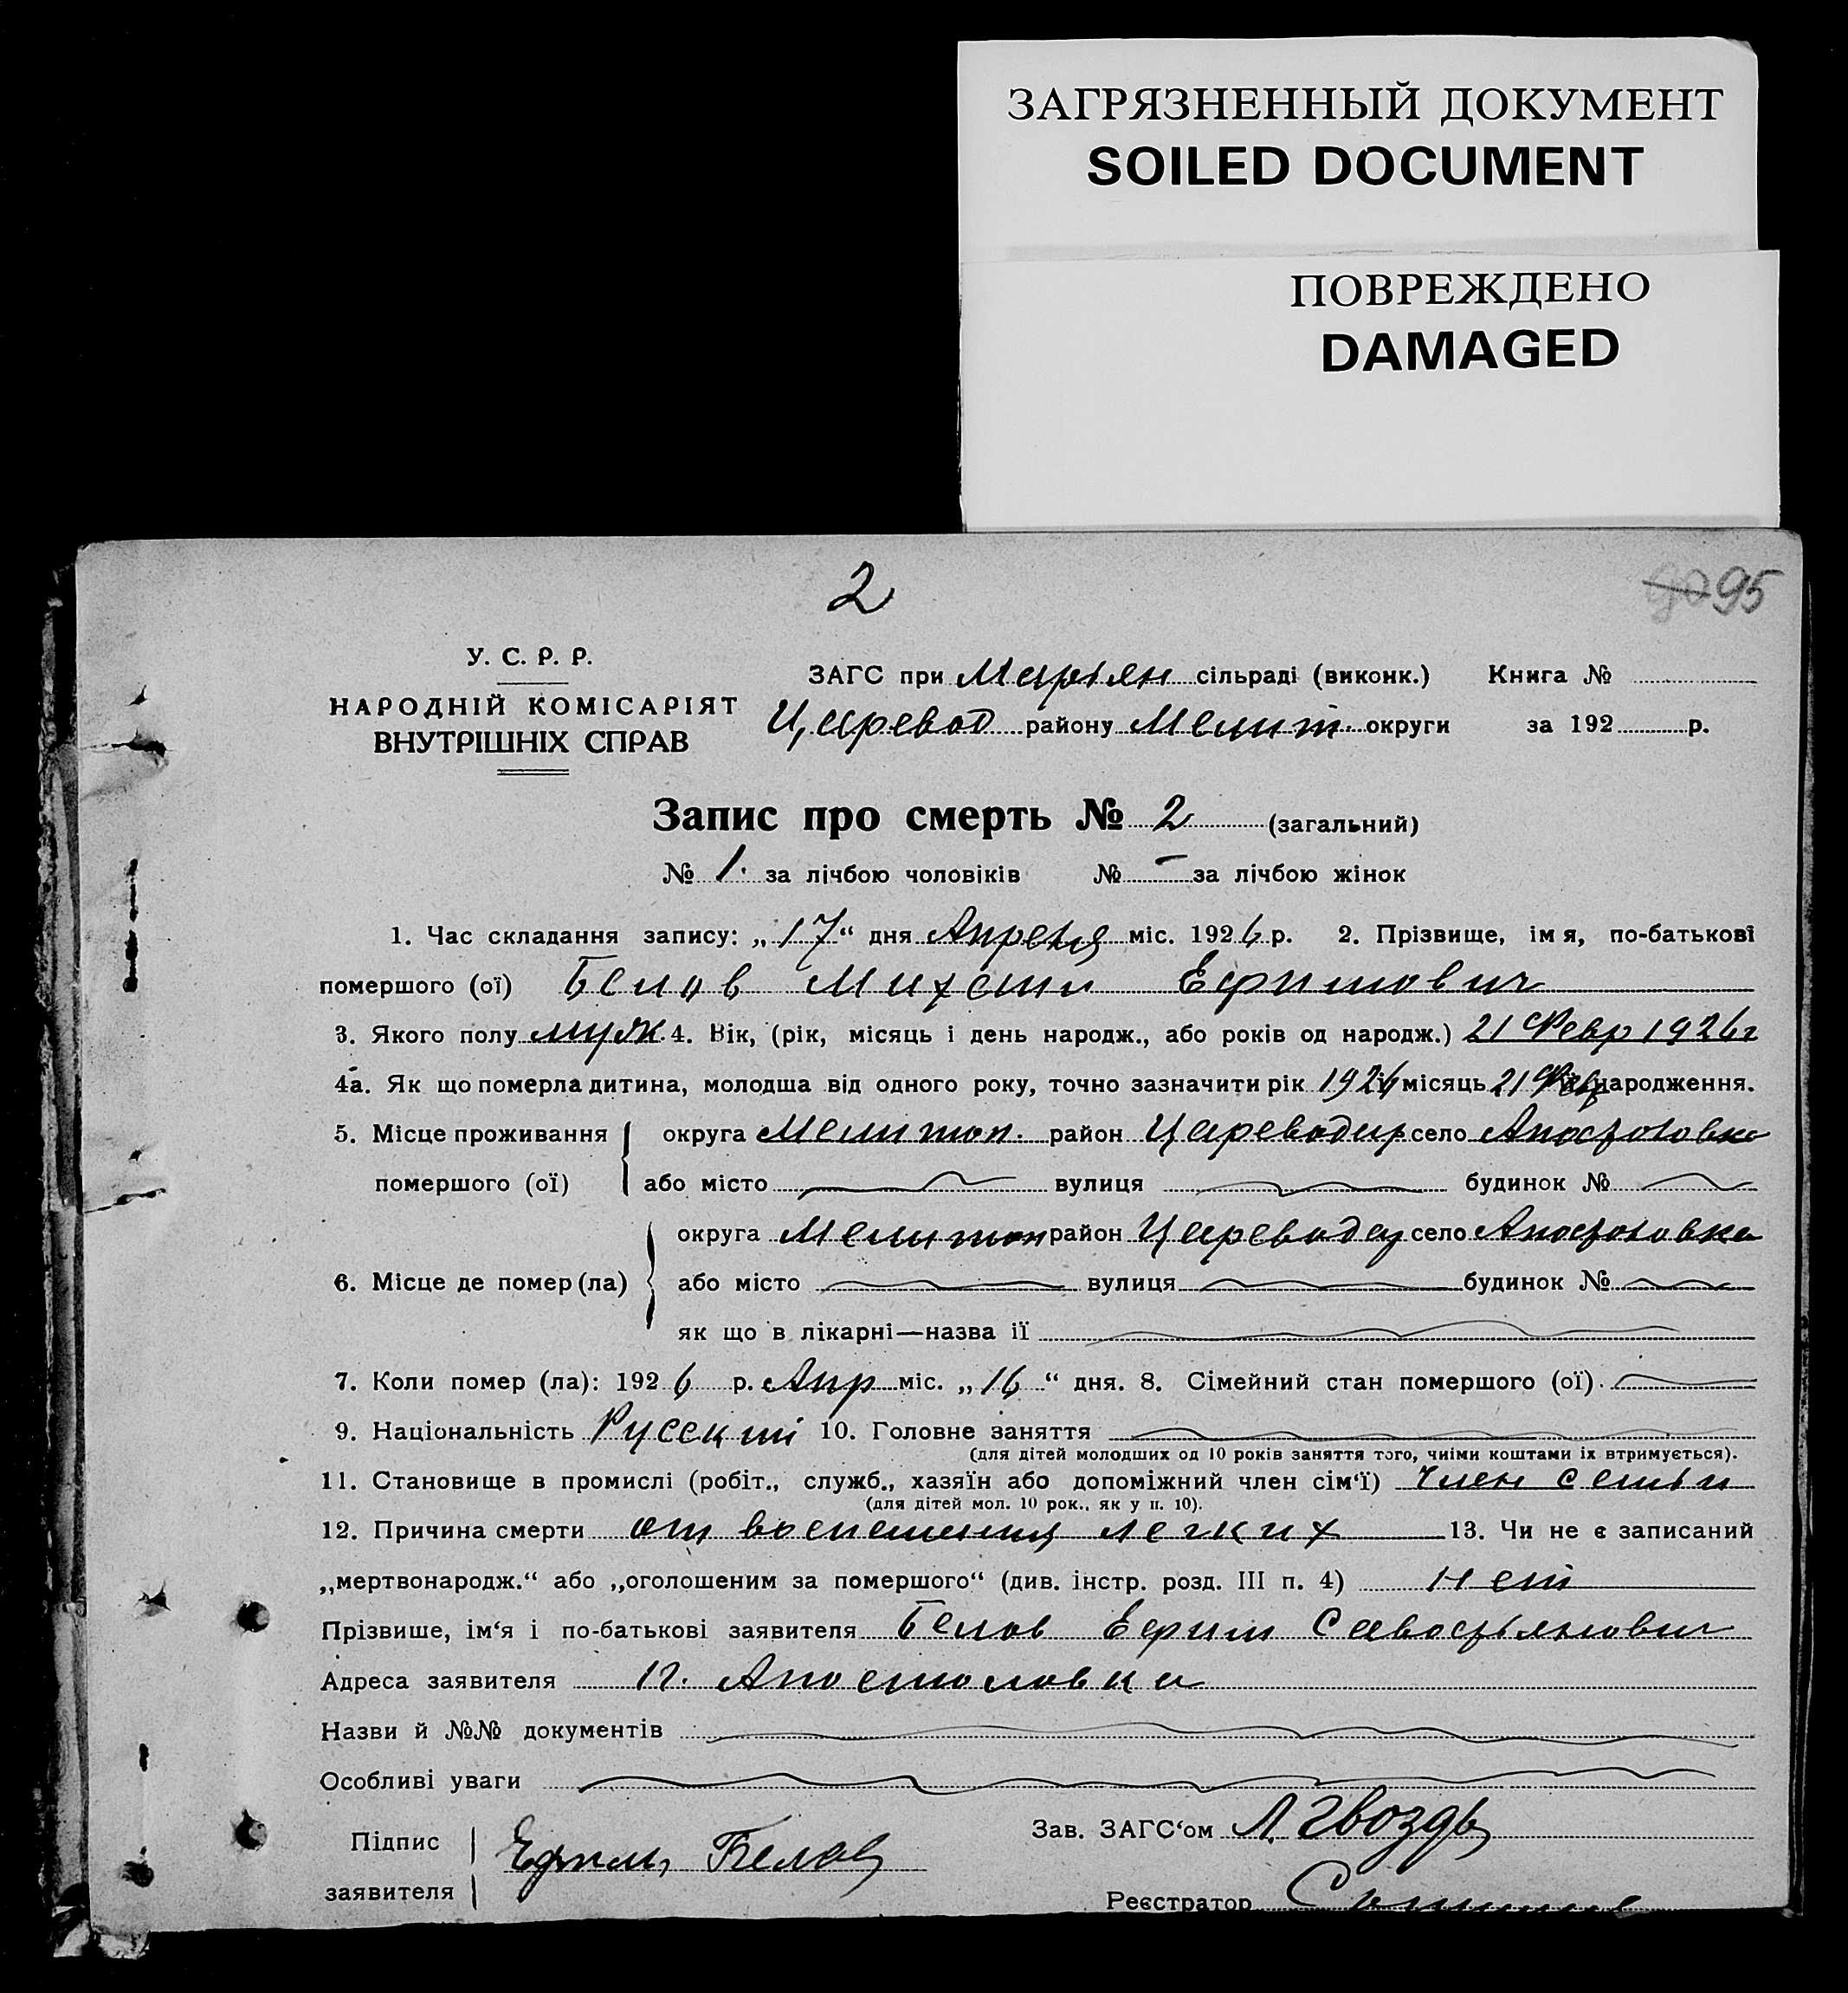 ЗАГРЯЗНЕННЫЙ ДОКУМЕНТ
SOILED DOCUMENT
ПОВРЕЖДЕНО
DAMAGED
2
90 95
У. С. Р. Р.
НАРОДНІЙ КОМІСАРІЯТ
ВНУТРІШНІХ СПРАВ
ЗАГС при Марьян сільраді (виконк.) Книга №
Царевод району Мелит. округи за 192 р.
Запис про смерть № 2 (загальний)
№ 1. за лічбою чоловіків № – за лічбою жінок
1. Час складання запису: „17“ дня Апреля міс. 1926 р. 2. Прізвище, імя, по-батькові
помершого (ої) Белов Михаил Ефимович
3. Якого полу муж. 4. Вік, (рік, місяць і день народж., або років од народж.) 21 Февр 1926 г
4а. Як що померла дитина, молодша від одного року, точно зазначити рік 1926 місяць 21 Фев народження.
5. Місце проживання округа Мелитоп. район Цареводар село Апостоловка
помершого (ої) або місто вулиця будинок №
округа Мелитоп район Цареводар село Апостоловка
6. Місце де помер (ла) або місто вулиця будинок №
як що в лікарні—назва її
7. Коли помер (ла): 1926 р. Апр міс. „16“ дня. 8. Сімейний стан помершого (ої).
9. Національність Русский 10. Головне заняття
(для дітей молодших од 10 років заняття того, чиїми коштами їх втримується).
11. Становище в промислі (робіт., служб., хазяїн або допоміжний член сім‘ї) Член семьи
(для дітей мол. 10 рок., як у п. 10).
12. Причина смерти от воспеления легких 13. Чи не є записаний
„мертвонародж.“ або „оголошеним за помершого“ (див. інстр. розд. III п. 4) Нет
Прізвише, ім‘я і по-батькові заявителя Белов Ефим Савостьянович
Адреса заявителя п. Апостоловка
Назви й №№ документів
Особливі уваги
Підпис
заявителя Ефим Белов
Зав. ЗАГС‘ом Л. Гвоздь
Реєстратор